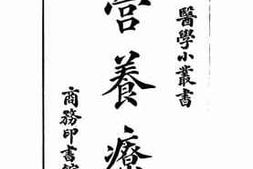 醫學小叢書
營養療
商務印書館